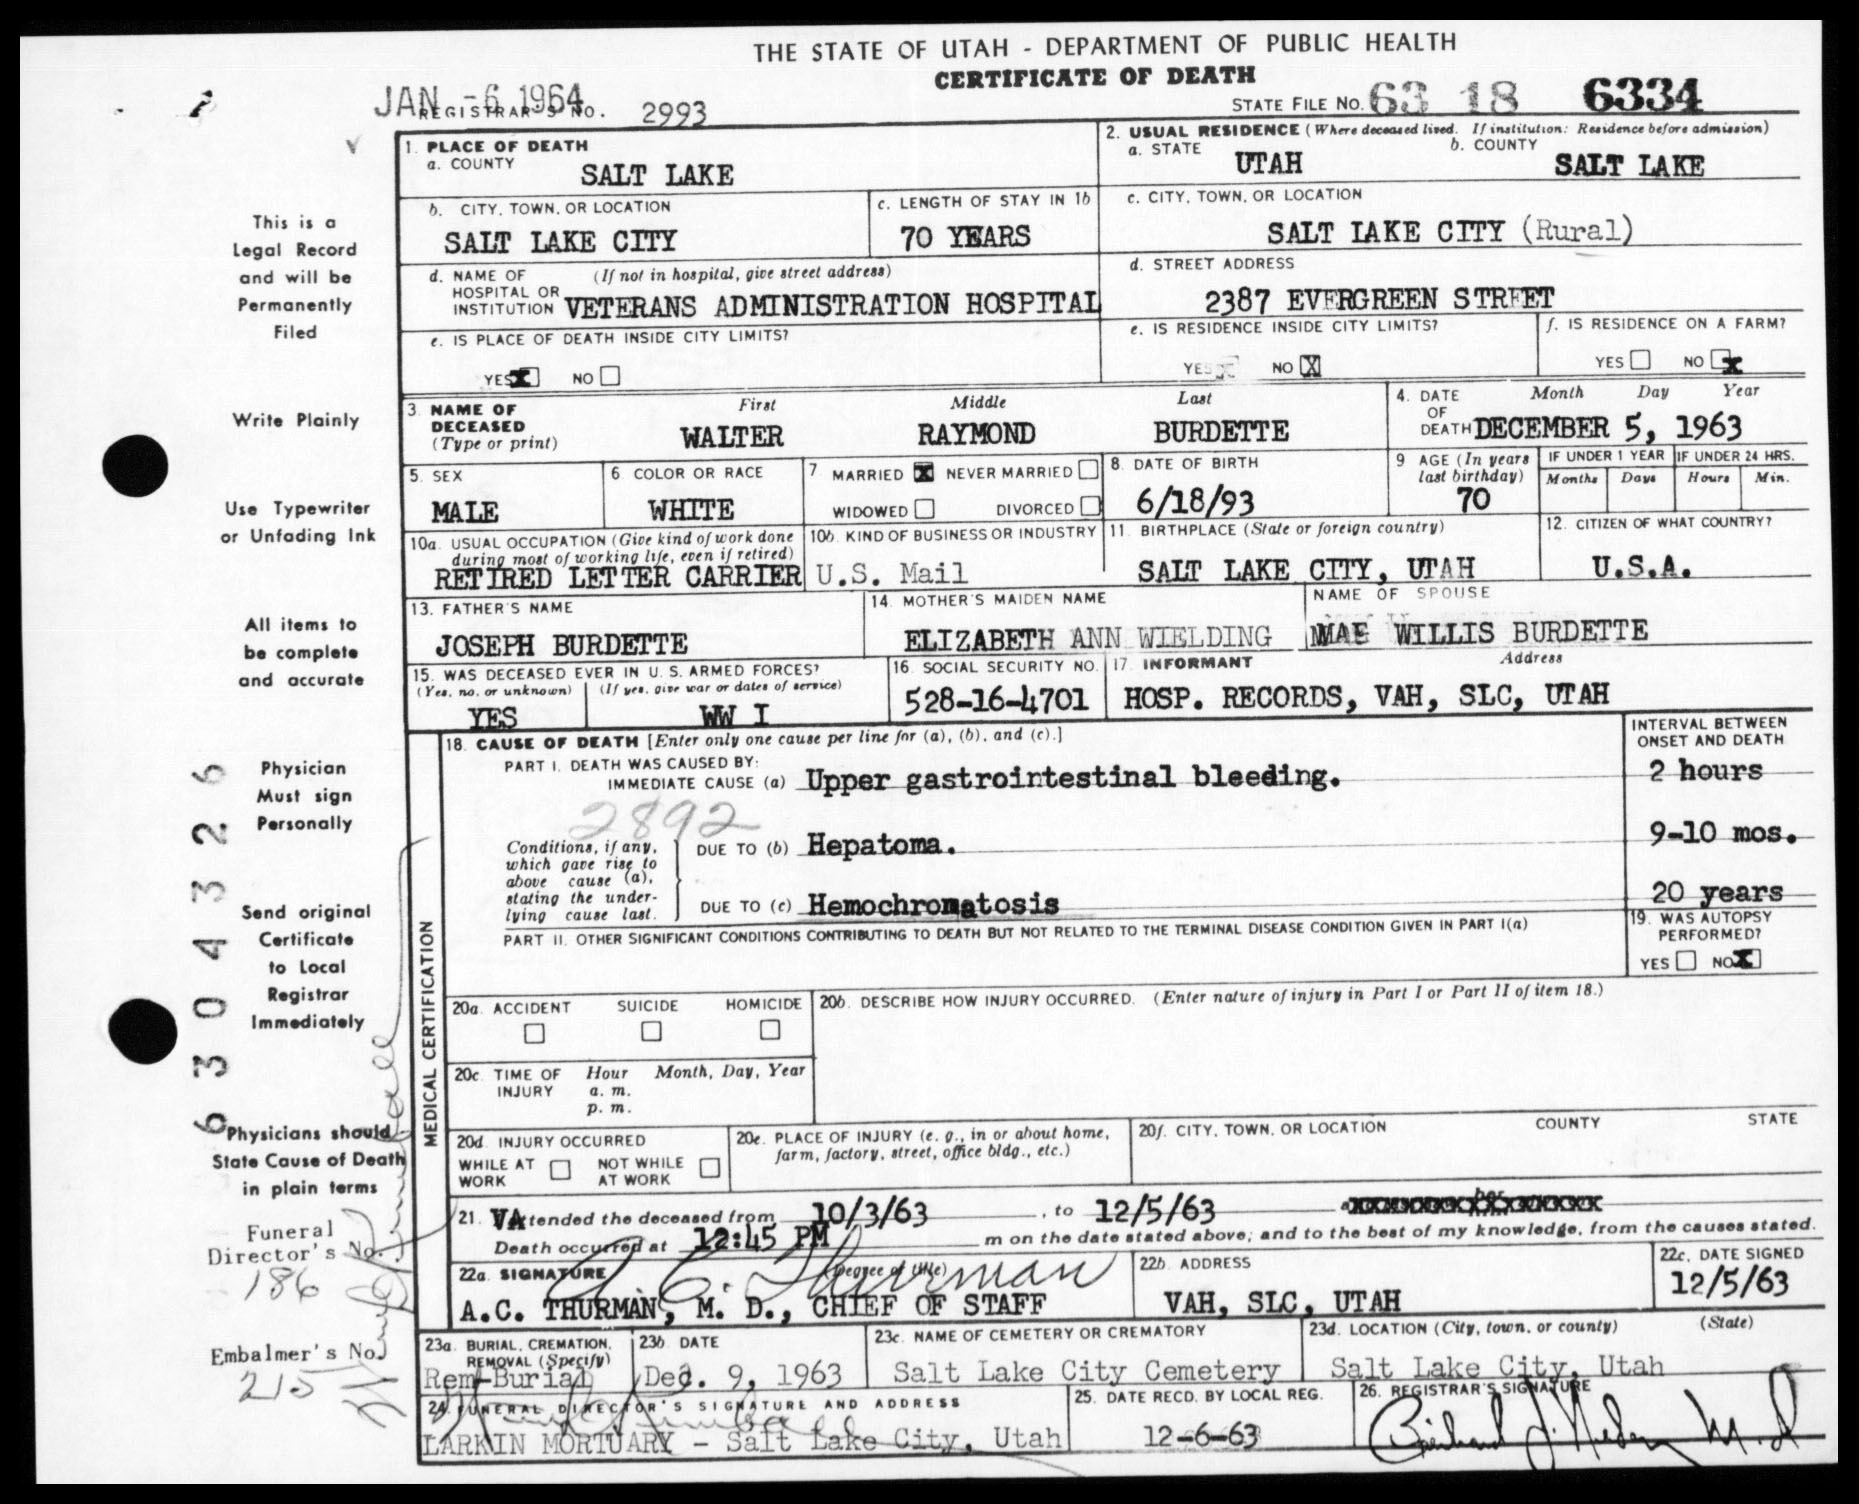 THE STATE OF UTAH - DEPARTMENT OF PUBLIC HEALTH
CERTIFICATE OF DEATH
JAN -6 1964
REGISTRAR'S NO. 2993
STATE FILE NO. 63 18 6334
1. PLACE OF DEATH
a. COUNTY
SALT LAKE
2. USUAL RESIDENCE (Where deceased lived. If institution: Residence before admission)
a. STATE UTAH b. COUNTY SALT LAKE
b. CITY, TOWN, OR LOCATION
SALT LAKE CITY
c. LENGTH OF STAY IN 1b
70 YEARS
c. CITY, TOWN, OR LOCATION
SALT LAKE CITY (Rural)
d. NAME OF HOSPITAL OR INSTITUTION (If not in hospital, give street address)
VETERANS ADMINISTRATION HOSPITAL
d. STREET ADDRESS
2387 EVERGREEN STREET
e. IS PLACE OF DEATH INSIDE CITY LIMITS?
YES X NO
e. IS RESIDENCE INSIDE CITY LIMITS?
YES NO X
f. IS RESIDENCE ON A FARM?
YES NO X
3. NAME OF DECEASED (Type or print)
First Middle Last
WALTER RAYMOND BURDETTE
4. DATE OF DEATH Month Day Year
DECEMBER 5, 1963
5. SEX
MALE
6 COLOR OR RACE
WHITE
7. MARRIED X NEVER MARRIED
WIDOWED DIVORCED
8. DATE OF BIRTH
6/18/93
9 AGE (In years last birthday)
70
IF UNDER 1 YEAR
Months Days
IF UNDER 24 HRS.
Hours Min.
10a. USUAL OCCUPATION (Give kind of work done during most of working life, even if retired)
RETIRED LETTER CARRIER
10b. KIND OF BUSINESS OR INDUSTRY
U.S. Mail
11. BIRTHPLACE (State or foreign country)
SALT LAKE CITY, UTAH
12. CITIZEN OF WHAT COUNTRY?
U.S.A.
13. FATHER'S NAME
JOSEPH BURDETTE
14. MOTHER'S MAIDEN NAME
ELIZABETH ANN WIELDING
NAME OF SPOUSE
MAE WILLIS BURDETTE
15. WAS DECEASED EVER IN U.S. ARMED FORCES?
(Yes, no, or unknown) (If yes, give war or dates of service)
YES WW I
16. SOCIAL SECURITY NO.
528-16-4701
17. INFORMANT Address
HOSP. RECORDS, VAH, SLC, UTAH
MEDICAL CERTIFICATION
18. CAUSE OF DEATH [Enter only one cause per line for (a), (b), and (c).]
INTERVAL BETWEEN ONSET AND DEATH
PART I. DEATH WAS CAUSED BY:
IMMEDIATE CAUSE (a) Upper gastrointestinal bleeding. 2 hours
2892
Conditions, if any, which gave rise to above cause (a), stating the underlying cause last.
DUE TO (b) Hepatoma. 9-10 mos.
DUE TO (c) Hemochromatosis 20 years
PART II. OTHER SIGNIFICANT CONDITIONS CONTRIBUTING TO DEATH BUT NOT RELATED TO THE TERMINAL DISEASE CONDITION GIVEN IN PART I(a)
19. WAS AUTOPSY PERFORMED?
YES NO X
20a. ACCIDENT SUICIDE HOMICIDE
20b. DESCRIBE HOW INJURY OCCURRED. (Enter nature of injury in Part I or Part II of item 18.)
20c. TIME OF INJURY Hour Month, Day, Year
a. m.
p. m.
20d. INJURY OCCURRED
WHILE AT WORK NOT WHILE AT WORK
20e. PLACE OF INJURY (e. g., in or about home, farm, factory, street, office bldg., etc.)
20f. CITY, TOWN, OR LOCATION COUNTY STATE
21. VA tended the deceased from 10/3/63, to 12/5/63
Death occurred at 12:45 PM m on the date stated above; and to the best of my knowledge, from the causes stated.
22a. SIGNATURE (Degree or title)
A C Thurman
A.C. THURMAN, M. D., CHIEF OF STAFF
22b. ADDRESS
VAH, SLC, UTAH
22c. DATE SIGNED
12/5/63
23a. BURIAL, CREMATION, REMOVAL (Specify)
Rem-Burial
23b. DATE
Dec. 9, 1963
23c. NAME OF CEMETERY OR CREMATORY
Salt Lake City Cemetery
23d. LOCATION (City, town, or county) (State)
Salt Lake City, Utah
24. FUNERAL DIRECTOR'S SIGNATURE AND ADDRESS
LARKIN MORTUARY - Salt Lake City, Utah
25. DATE RECD. BY LOCAL REG.
12-6-63
26. REGISTRAR'S SIGNATURE
This is a
Legal Record
and will be
Permanently
Filed
Write Plainly
Use Typewriter
or Unfading Ink
All items to
be complete
and accurate
Physician
Must sign
Personally
Send original
Certificate
to Local
Registrar
Immediately
Physicians should
State Cause of Death
in plain terms
Funeral
Director's No.
186
Embalmer's No.
215
63043326